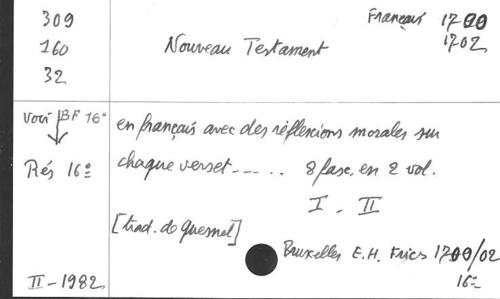 309
160
32
Français 1700
1702
Nouveau Testament
Voir BF 16°
Rés 16°
en français avec des réflexions morales sur
chaque verset ..... 8 fasc. en 2 vol.
I - II
[trad. de Quesnel]
Bruxelles E.H. Frics 1700/02
16°
II - 1982